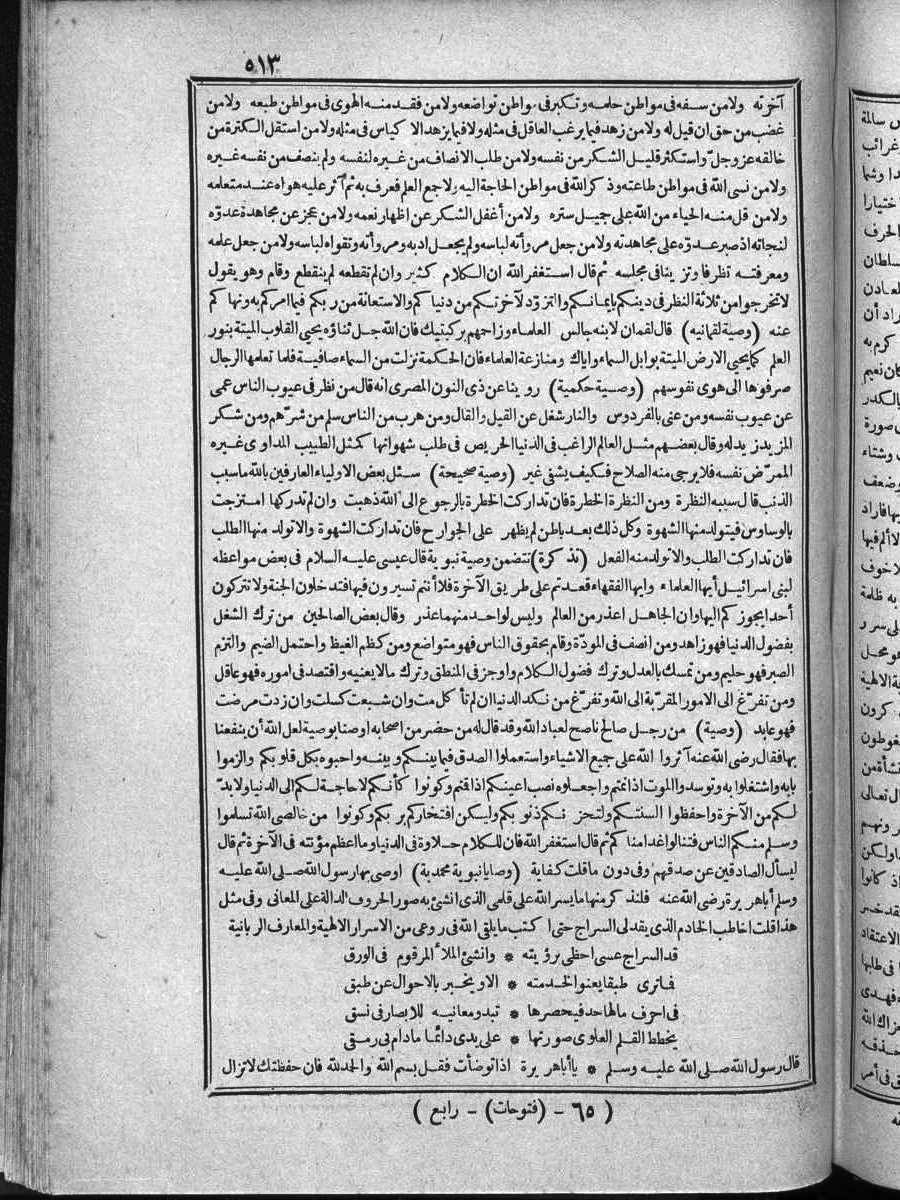 ٥١٣
آخرته ولا من سفه في مواطن حلمه وتكبر في مواطن تواضعه ولا من فقد منه الهوى في مواطن طبعه ولا من
غضب من حق ان قيل له ولا من زهد فيما يرغب العاقل في مثله ولا فيما يزهد الا كياس في مثله ولا من استقل الكثرة من
خالقه عز وجل واستكثر قليل الشكر من نفسه ولا من طلب الانصاف من غيره لنفسه ولم ينصف من نفسه غيره
ولا من نسى الله في مواطن طاعته وذكر الله في مواطن الحاجة اليه ولا جمع العلم فعرف به ثم آثر عليه هواه عند متعلمه
ولا من قل منه الحياء من الله على جميل ستره ولا من أغفل الشكر عن اظهار نعمه ولا من عجز عن مجاهدة عدوه
لنجاته اذ صبر عدوه على مجاهدته ولا من جعل مروأته لباسه ولم يجعل ادبه ومروأته وتقواه لباسه ولا من جعل علمه
ومعرفته تظرفا وتزينا في مجلسه ثم قال استغفر الله ان الكلام كثير وان لم تقطعه لم ينقطع وقام وهو يقول
لا تخرجوا من ثلاثة النظر في دينكم بايمانكم والتزود لآخرتكم من دنياكم والاستعانة من ربكم فيما امركم به ونها كم
عنه (وصية لقمانية) قال لقمان لابنه جالس العلماء وزاحمهم بركبتيك فان الله جل ثناؤه يحيي القلوب الميتة بنور
العلم كما يحيي الارض الميتة بوابل السماء واياك ومنازعة العلماء فان الحكمة نزلت من السماء صافية فلما تعلمها الرجال
صرفوها الى هوى نفوسهم (وصية حكمية) روينا عن ذي النون المصرى انه قال من نظر في عيوب الناس عمى
عن عيوب نفسه ومن عنى بالفردوس والنار شغل عن القيل والقال ومن هرب من الناس سلم من شرهم ومن شكر
المزيد زيد له وقال بعضهم مثل العالم الراغب في الدنيا الحريص في طلب شهواتها كمثل الطبيب المداوى غيره
الممرض نفسه فلا يرجى منه الصلاح فكيف يشفى غير (وصية صحيحة) سئل بعض الاولياء العارفين بالله ما سبب
الذنب قال سببه النظرة ومن النظرة الخطرة فان تداركت الخطرة بالرجوع الى الله ذهبت وان لم تدركها امتزجت
بالوساوس فيتولد منها الشهوة وكل ذلك بعد باطن لم يظهر على الجوارح فان تداركت الشهوة والا تولد منها الطلب
فان تداركت الطلب والا تولد منه الفعل (تذكرة) تتضمن وصية نبوية قال عيسى عليه السلام في بعض مواعظه
لبنى اسرائيل أيها العلماء وايها الفقهاء قعدتم على طريق الآخرة فلا أنتم تسيرون فيها فتدخلون الجنة ولا تتركون
أحدا يجوزكم اليها وان الجاهل اعذر من العالم وليس لواحد منهما عذر وقال بعض الصالحين من ترك الشغل
بفضول الدنيا فهو زاهد ومن انصف في المودة وقام بحقوق الناس فهو متواضع ومن كظم الغيظ واحتمل الضيم والتزم
الصبر فهو حليم ومن تمسك بالعدل وترك فضول الكلام واوجز في المنطق وترك ما لا يعنيه واقتصد في اموره فهو عاقل
ومن تفرغ الى الامور المقربة الى الله وتفرغ من نكد الدنيا ان لم تأ كل مت وان شبعت كسلت وان زدت مرضت
فهو عابد (وصية) من رجل صالح ناصح لعباد الله وقد قال له من حضر من اصحابه اوصنا بوصية لعل الله أن ينفعنا
بها فقال رضى الله عنه آثروا الله على جميع الاشياء واستعملوا الصدق فيما بينكم وبينه واحبوه بكل قلوبكم والزموا
بابه واشتغلوا به وتوسدوا الموت اذا نمتم واجعلوه نصب اعينكم اذا قمتم وكونوا كأنكم لا حاجة لكم الى الدنيا ولا بد
لكم من الآخرة واحفظوا السنتكم ولتحزنكم ذنوبكم وليكن افتخاركم بربكم وكونوا من خالصى الله تسلموا
وسلم منكم الناس فتنالوا غدا مناكم ثم قال استغفر الله فان للكلام حلاوة في الدنيا وما اعظم مؤنته في الآخرة ثم قال
ليسأل الصادقين عن صدقهم وفي دون ما قلت كفاية (وصايا نبوية محمدية) اوصى بها رسول الله صلى الله عليه
وسلم أبا هريرة رضى الله عنه فلنذكر منها ما يسر الله على قلمى الذي انشئ به صور الحروف الدالة على المعاني وفي مثل
هذا قلت اخاطب الخادم الذي يقدلى السراج حتى اكتب ما يلقى الله في روعى من الاسرار الالهية والمعارف الربانية
قد السراج عسى احظى برؤيته * وانشئ الملأ المرقوم في الورق
فاترى طبقا يعنو الخدمته * الا ويخبر بالاحوال عن طبق
في احرف مالها حد فيحصرها * تبدو معانيه للابصار في نسق
يخطط القلم العلوى صورتها * على يدى دائما مادام بي رمقى
قال رسول الله صلى الله عليه وسلم * يا أبا هريرة اذا توضأت فقل بسم الله والحمد لله فان حفظتك لا تزال
( ٦٥ - (فتوحات) - رابع )